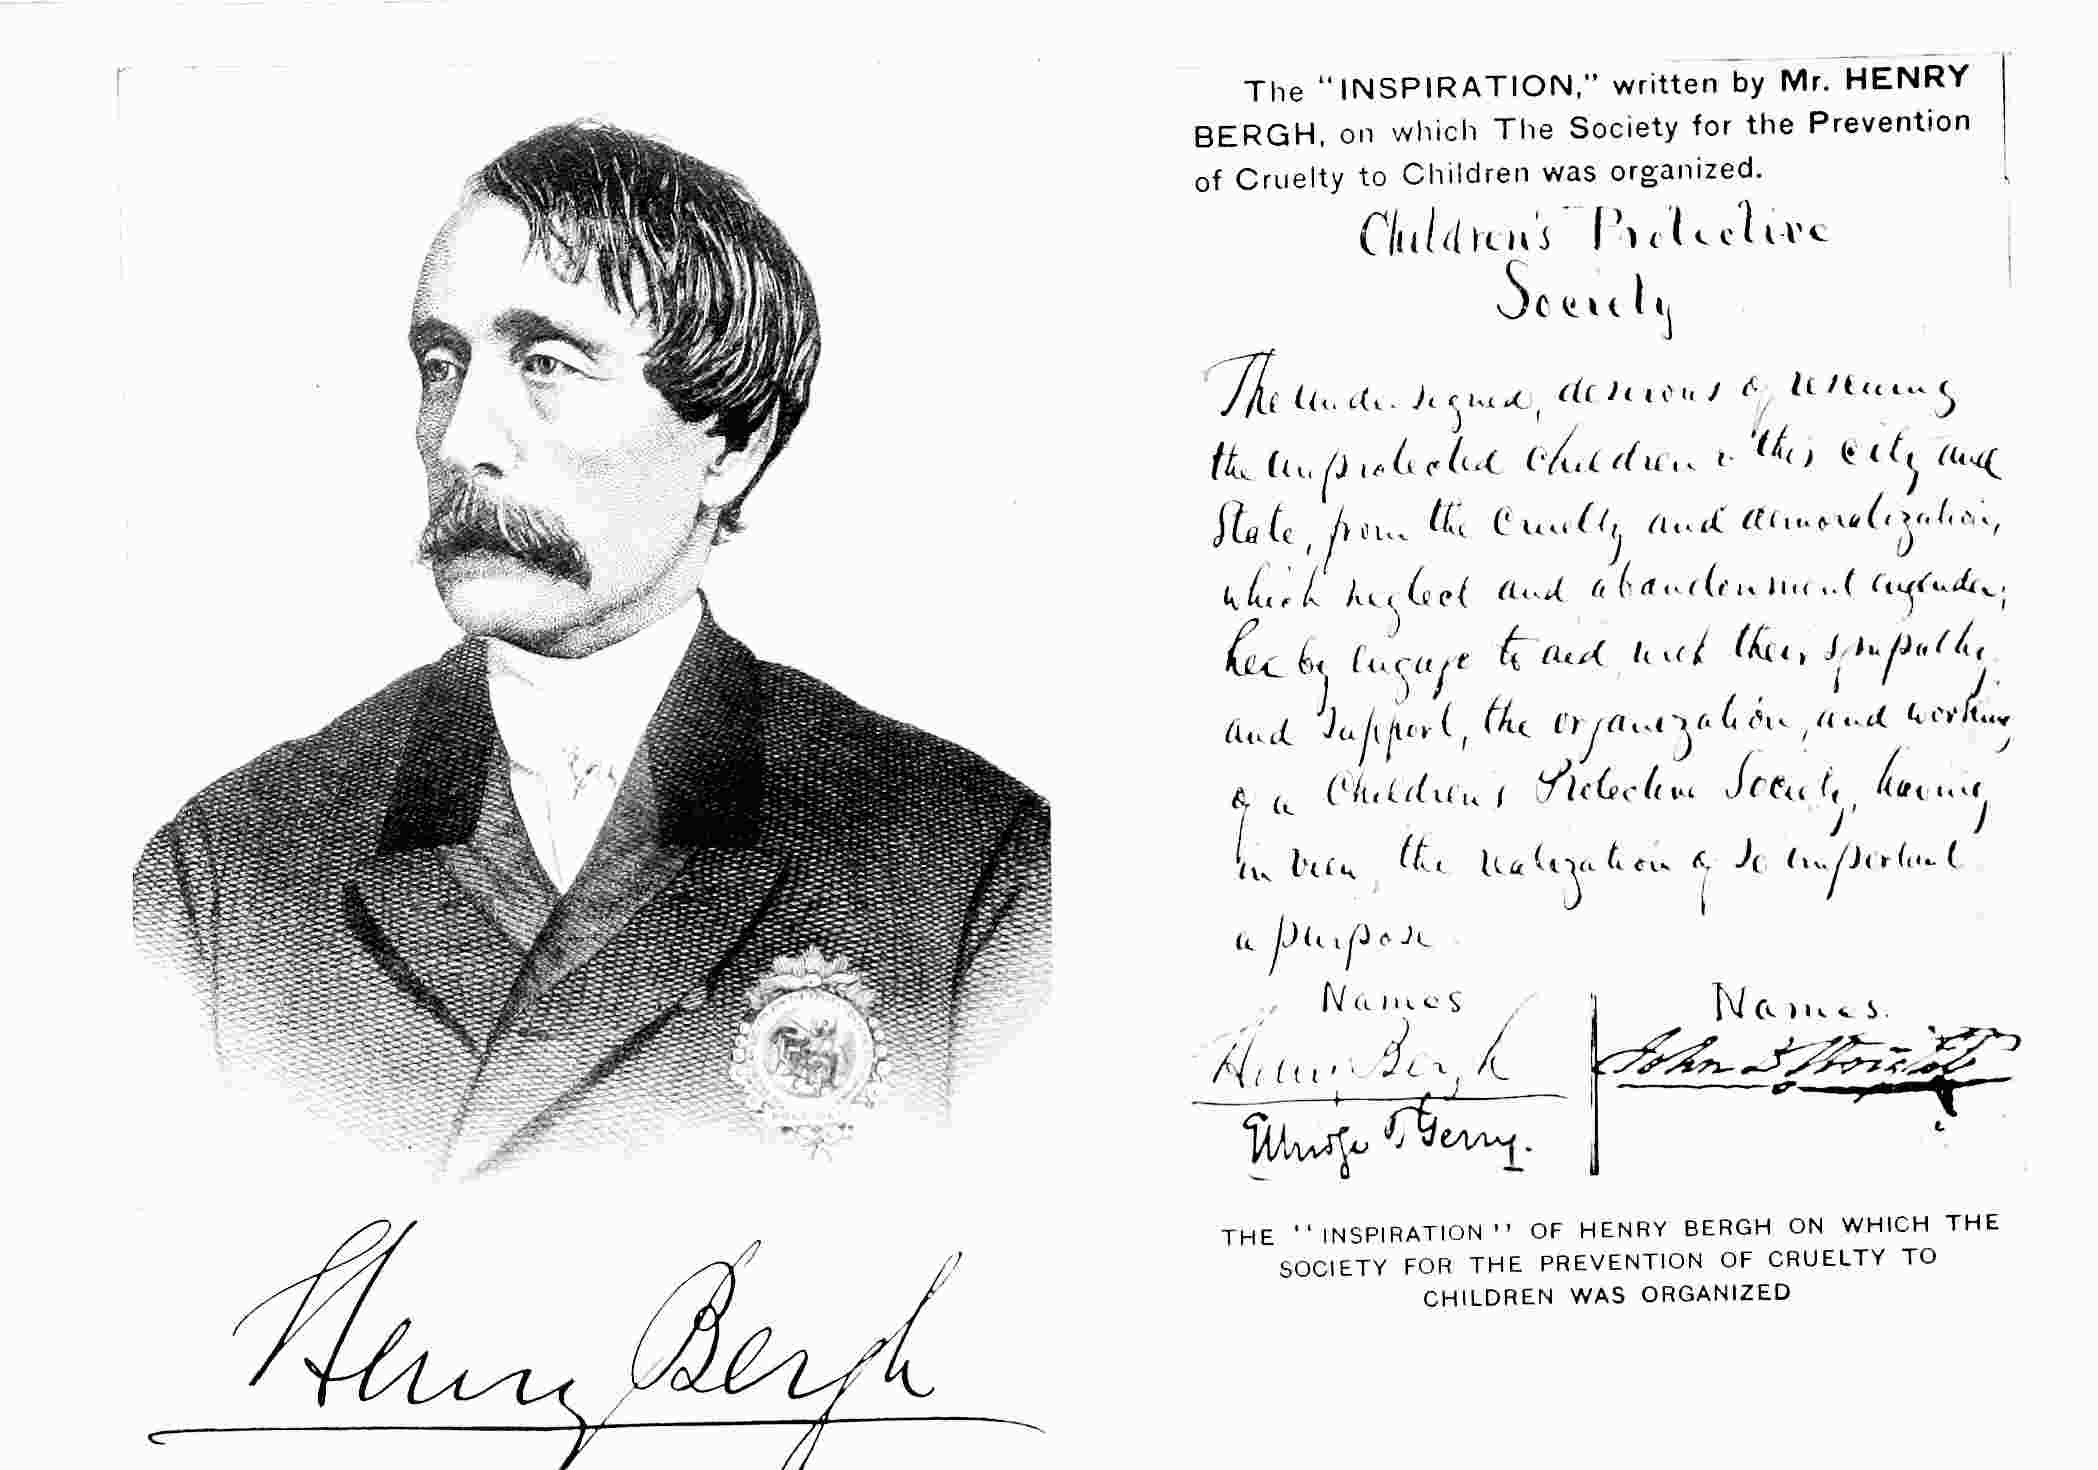 The "INSPIRATION," written by Mr. HENRY
BERGH, on which The Society for the Prevention
of Cruelty to Children was organized.
Children's Protective
Society
The undersigned, desirous of rescuing
the unprotected children of this city and
State, from the cruelty and demoralization,
which neglect and abandonment engender;
hereby engage to aid, with their sympathy
and support, the organization, and working
of a Children's Protective Society, having
in view, the realization of so important
a purpose.
Names
Names.
Henry Bergh
John D Wright
Elbridge T. Gerry.
THE "INSPIRATION" OF HENRY BERGH ON WHICH THE
SOCIETY FOR THE PREVENTION OF CRUELTY TO
CHILDREN WAS ORGANIZED
Henry Bergh